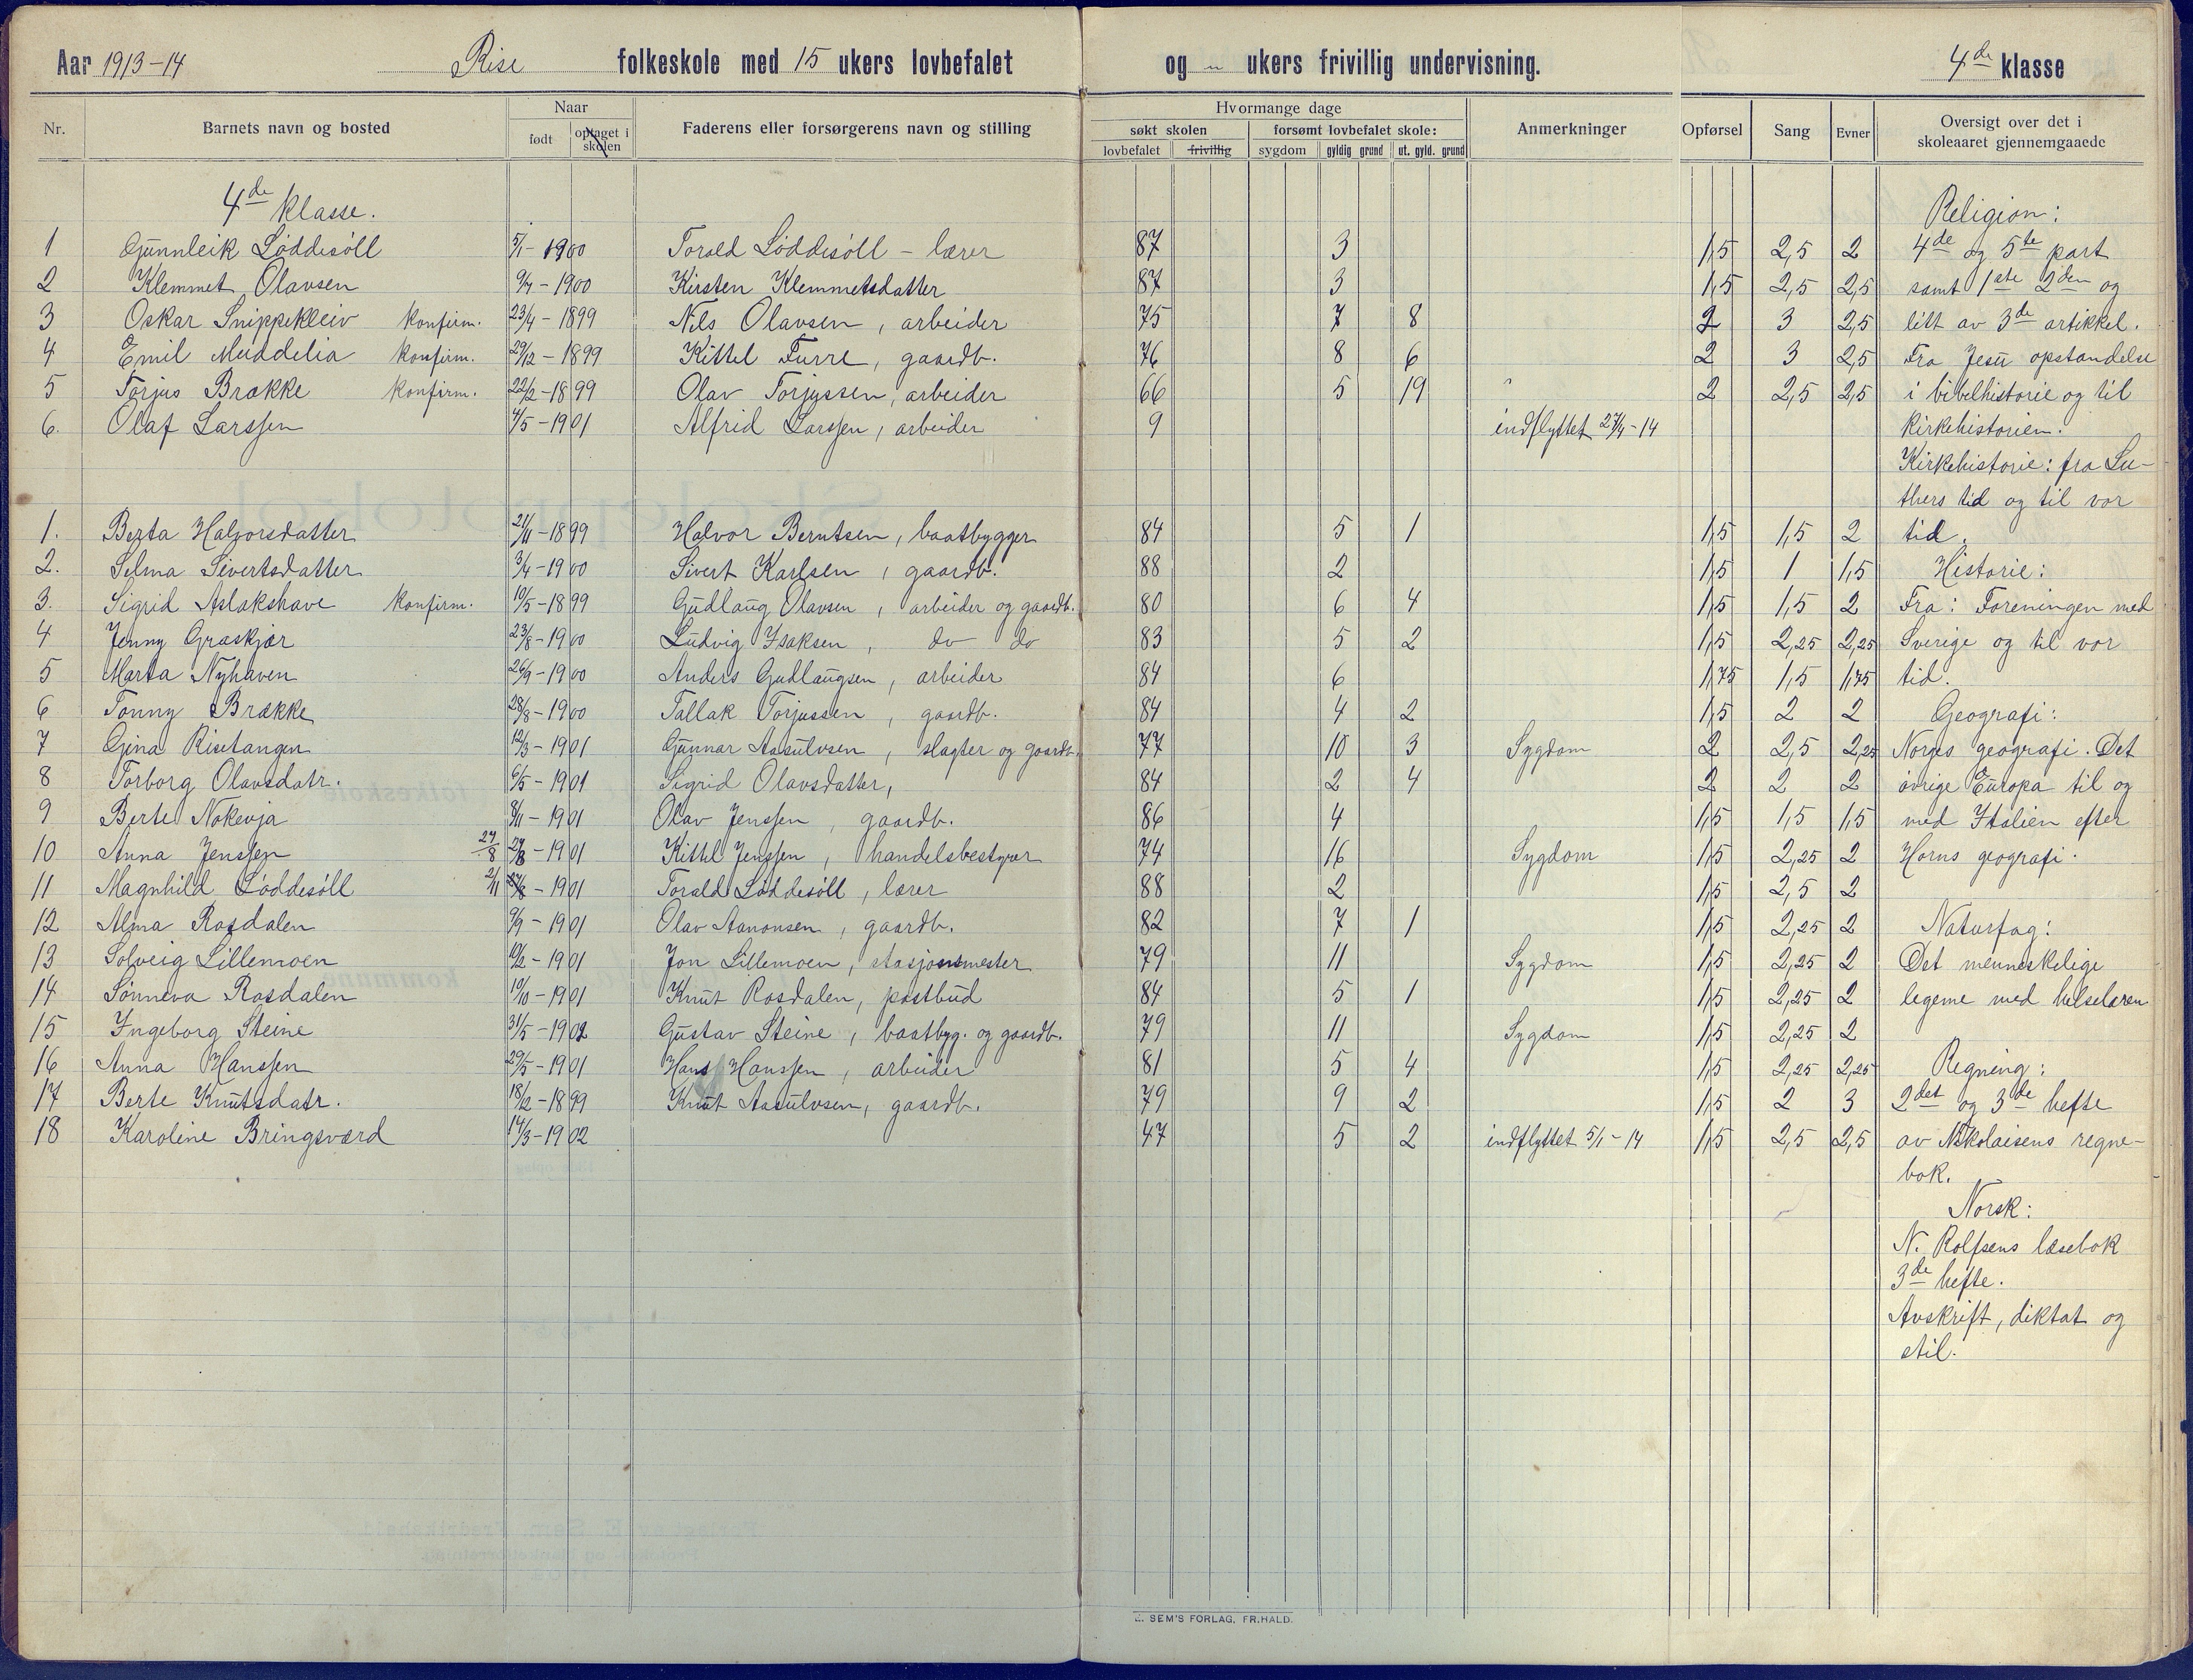 Aar 1913-14 Rise folkeskole med 15 ukers lovbefalet og " ukers frivillig undervisning. 4de klasse
Nr. Barnets navn og bosted Naar født optaget i skolen Faderens eller forsørgerens navn og stilling Hvormange dage søkt skolen lovbefalet frivillig forsømt lovbefalet skole: sygdom gyldig grund ut. gyld. grund Anmerkninger Opførsel Sang Evner Oversigt over det i skoleaaret gjennemgaaede
4de klasse.
1 Gunnleik Løddesöll 5/1-1900 Torald Løddesöll - lærer 87 3 1,5 2,5 2
2 Klemmet Olavsen 9/7-1900 Kirsten Klemmetsdatter 87 3 1,5 2,5 2,5
3 Oskar Snippekleiv konfirm. 23/4-1899 Nils Olavsen, arbeider 75 7 8 2 3 2,5
4 Emil Muddelia konfirm. 29/12-1899 Kittel Furre, gaardb. 76 8 6 2 3 2,5
5 Torjus Brække konfirm. 22/2-1899 Olav Torjussen, arbeider 66 5 19 2 2,5 2,5
6. Olaf Larssen 4/5-1901 Alfrid Larssen, arbeider 9 indflyttet 27/4-14
1. Berta Halvorsdatter 21/11-1899 Halvor Berntsen, baatbygger 84 5 1 1,5 1,5 2
2. Selma Sivertsdatter 3/4-1900 Sivert Karlsen, gaardb. 88 2 1,5 1 1,5
3. Sigrid Aslakshave konfirm. 10/5-1899 Gudlaug Olavsen, arbeider og gaardb. 80 6 4 1,5 1,5 2
4 Jenny Græskjær 23/8-1900 Ludvig Isaksen, do do 83 5 2 1,5 2,25 2,25
5 Marta Nyhaven 26/9-1900 Anders Gudlaugsen, arbeider 84 6 1,75 1,5 1,75
6 Tonny Brække 28/8-1900 Tallak Torjussen, gaardb. 84 4 2 1,5 2 2
7 Gina Risetangen 12/3-1901 Gunnar Aasulvsen, slagter og gaardb. 77 10 3 Sygdom 2 2,5 2,25
8 Torborg Olavsdatr. 6/5-1901 Sigrid Olavsdatter, 84 2 4 2 2 2
9 Berte Nokevja 8/11-1901 Olav Jenssen, gaardb. 86 4 1,5 1,5 1,5
10 Anna Jenssen 27/8 27/8-1901 Kittel Jenssen, handelsbestyrer 74 16 Sygdom 1,5 2,25 2
11 Magnhild Løddesöll 2/11 -1901 Torald Løddesöll, lærer 88 2 1,5 2,5 2
12 Alma Rosdalen 9/9-1901 Olav Aanonsen, gaardb. 82 7 1 1,5 2,25 2
13 Solveig Lillemoen 10/2-1901 Jon Lillemoen, stasjonsmester 79 11 Sygdom 1,5 2,25 2
14 Sønneva Rosdalen 10/10-1901 Knut Rosdalen, postbud 84 5 1 1,5 2,25 2
15 Ingeborg Steine 31/5-1902 Gustav Steine, baatbyg. og gaardb. 79 11 Sygdom 1,5 2,25 2
16 Anna Hanssen 29/5-1901 Hans Hanssen, arbeider 81 5 4 1,5 2,25 2,25
17 Berte Knutsdatr. 18/2-1899 Knut Aasulvsen, gaardb. 79 9 2 1,5 2 3
18 Karoline Bringsværd 14/3-1902 47 5 2 indflyttet 5/1-14 1,5 2,5 2,5
Religion:
4de og 5te part
samt 1ste 2den og
litt av 3de artikkel.
Fra Jesu opstandelse
i bibelhistorie og til
kirkehistorien.
Kirkehistorie: fra Lu-
thers tid og til vor
tid.
Historie:
Fra: Foreningen med
Sverige og til vor
tid.
Geografi:
Norges geografi. Det
øvrige Europa til og
med Italien efter
Horns geografi.
Naturfag:
Det menneskelige
legeme med helselæren
Regning:
2det og 3de hefte
av Nikolaisens regne-
bok.
Norsk:
N. Rolfsens læsebok
3de hefte.
Avskrift, diktat og
stil.
SEM'S FORLAG, FR.HALD.